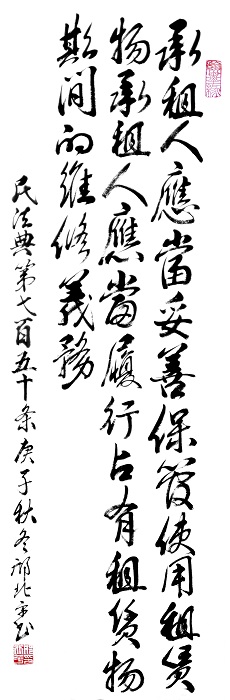 承租人應當妥善保管使用租賃
物承租人應當履行占有租賃物
期间的維修義務
民法典第七百五十条庚子秋冬